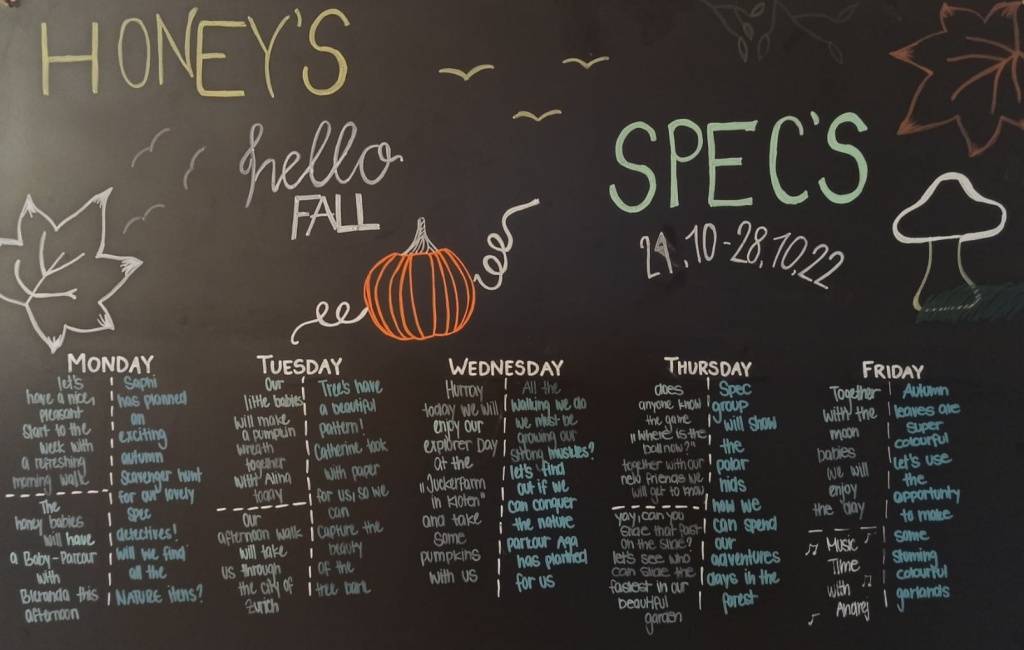 HONEY'S
hello
FALL
SPEC'S
24.10-28.10.22
MONDAY
let's
have a nice,
pleasant
start to the
week with
a refreshing
morning walk
The
honey babies
will have
a Baby-Parcour
with
Bleranda this
afternoon
Saphi
has planned
an
exciting
autumn
scavenger hunt
for our lovely
spec
detectives!
will we find
all the
NATURE items?
TUESDAY
Our
little babies
will make
a pumpkin
wreath
together
with Alma
today
Our
afternoon walk
will take
us through
the city of
Zurich
Tree's have
a beautiful
pattern!
Catherine took
with paper
for us, so we
can
capture the
beauty
of the
tree bark
WEDNESDAY
Hurray
today we will
enjoy our
explorer Day
at the
"Juckerfarm
in Kloten"
and take
some
pumpkins
with us
All the
walking we do
we must be
growing our
strong muskles?
let's find
out if we
can conquer
the nature
parcour Aga
has planned
for us
THURSDAY
does
anyone know
the game
"Where is the
ball now?"
together with our
new friends we
will get to know
yay, can you
slide that fast
on the slide?
let's see who
can slide the
fastest in our
beautiful
garden
Spec
group
will show
the
polar
kids
how we
can spend
our
adventures
days in the
forest
FRIDAY
Together
with the
moon
babies
we will
enjoy
the day
Music
Time
with
Andrej
Autumn
leaves are
super
colourful
let's use
the
opportunity
to make
some
stunning
colourful
garlands